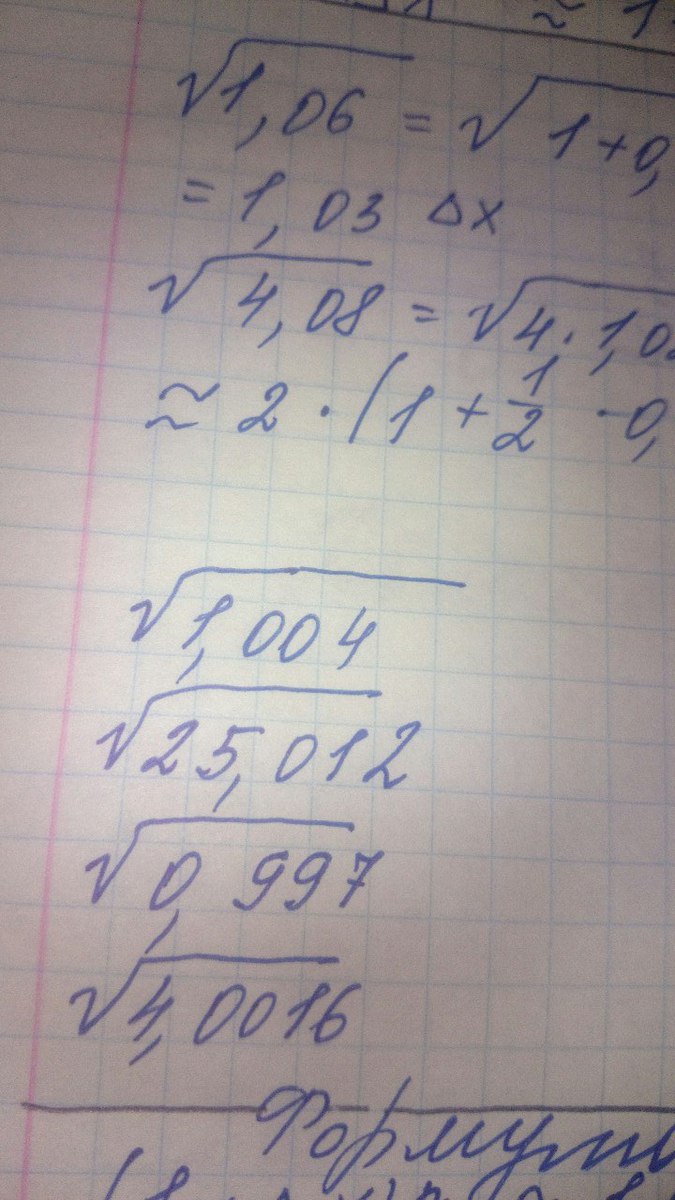 ≈ 1
√1,06 = √1+0,
= 1,03 Δx
√4,08 = √4·1,0
≈ 2·(1+1/2·0,
√1,004
√25,012
√0,997
√4,0016